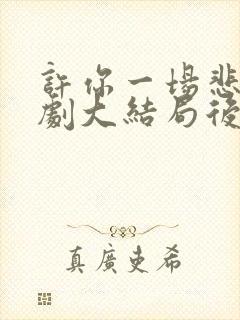 許你一場悲
劇大結局後
真廣吏希